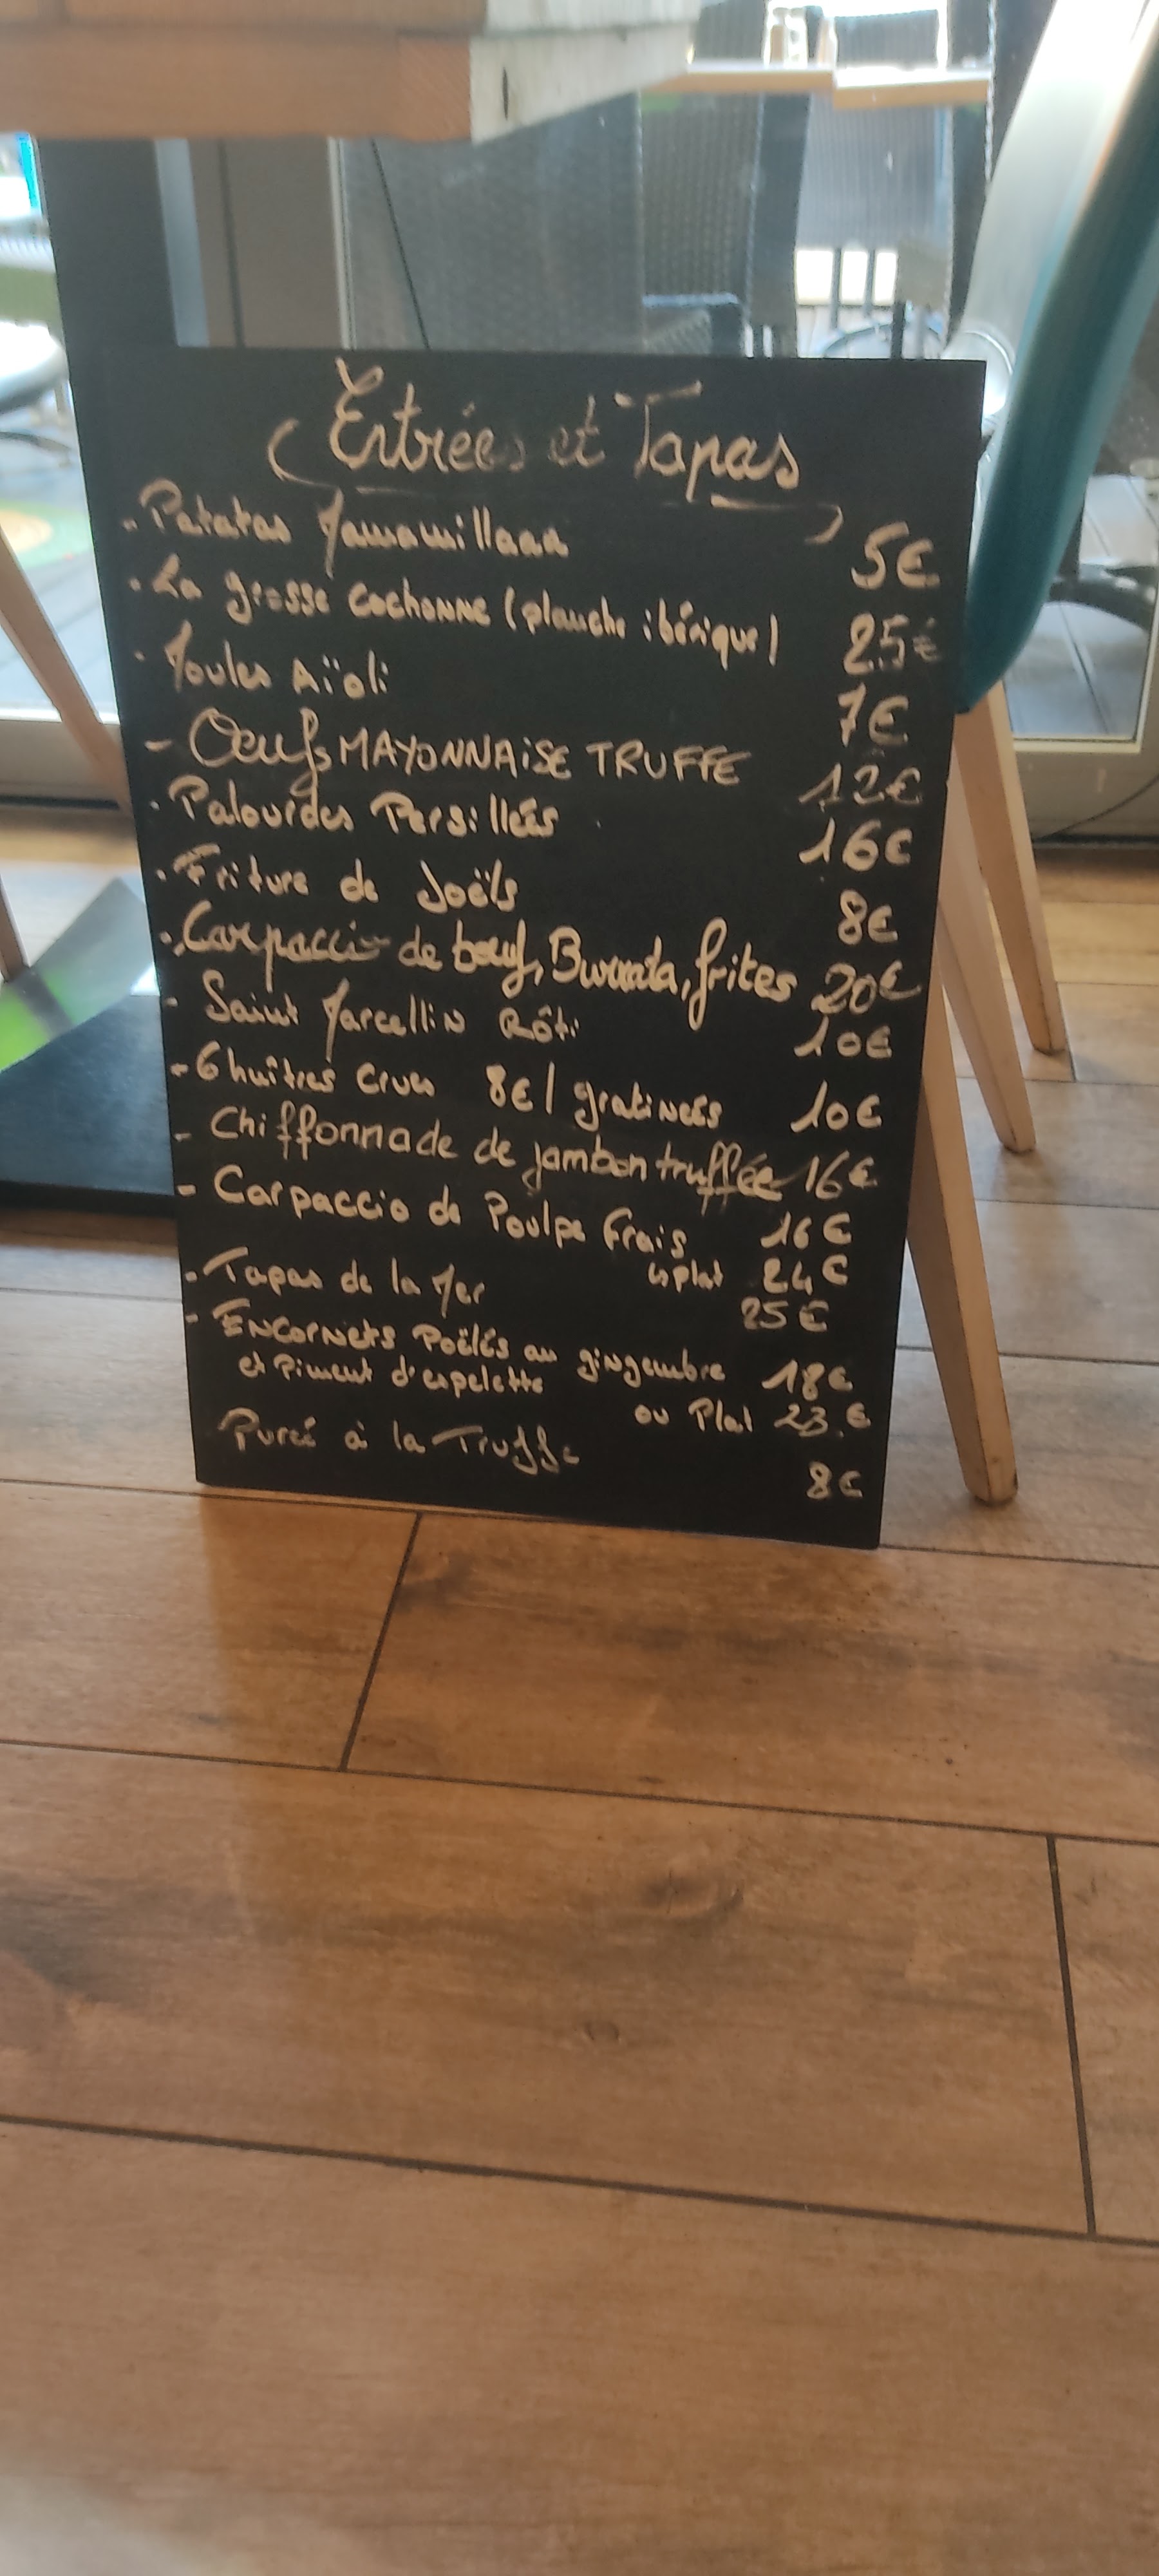 Entrées et Tapas
- Patatas Mamamillaaa 5€
- La grosse cochonne (planche ibérique) 25€
- Moules Aïoli 7€
- Oeufs MAYONNAISE TRUFFE 12€
- Palourdes Persillées 16€
- Friture de Joëls 8€
- Carpaccio de bœuf, Burrata, frites 20€
- Saint Marcellin Rôti 10€
- 6 huîtres crues 8€ / gratinées 10€
- Chiffonnade de jambon truffée 16€
- Carpaccio de Poulpe Frais 16€
↳ plat 24€
- Tapas de la Mer 25€
- Encornets Poëlés au gingembre 18€
et Piment d'espelette ou Plat 23€
Purée à la Truffe 8€